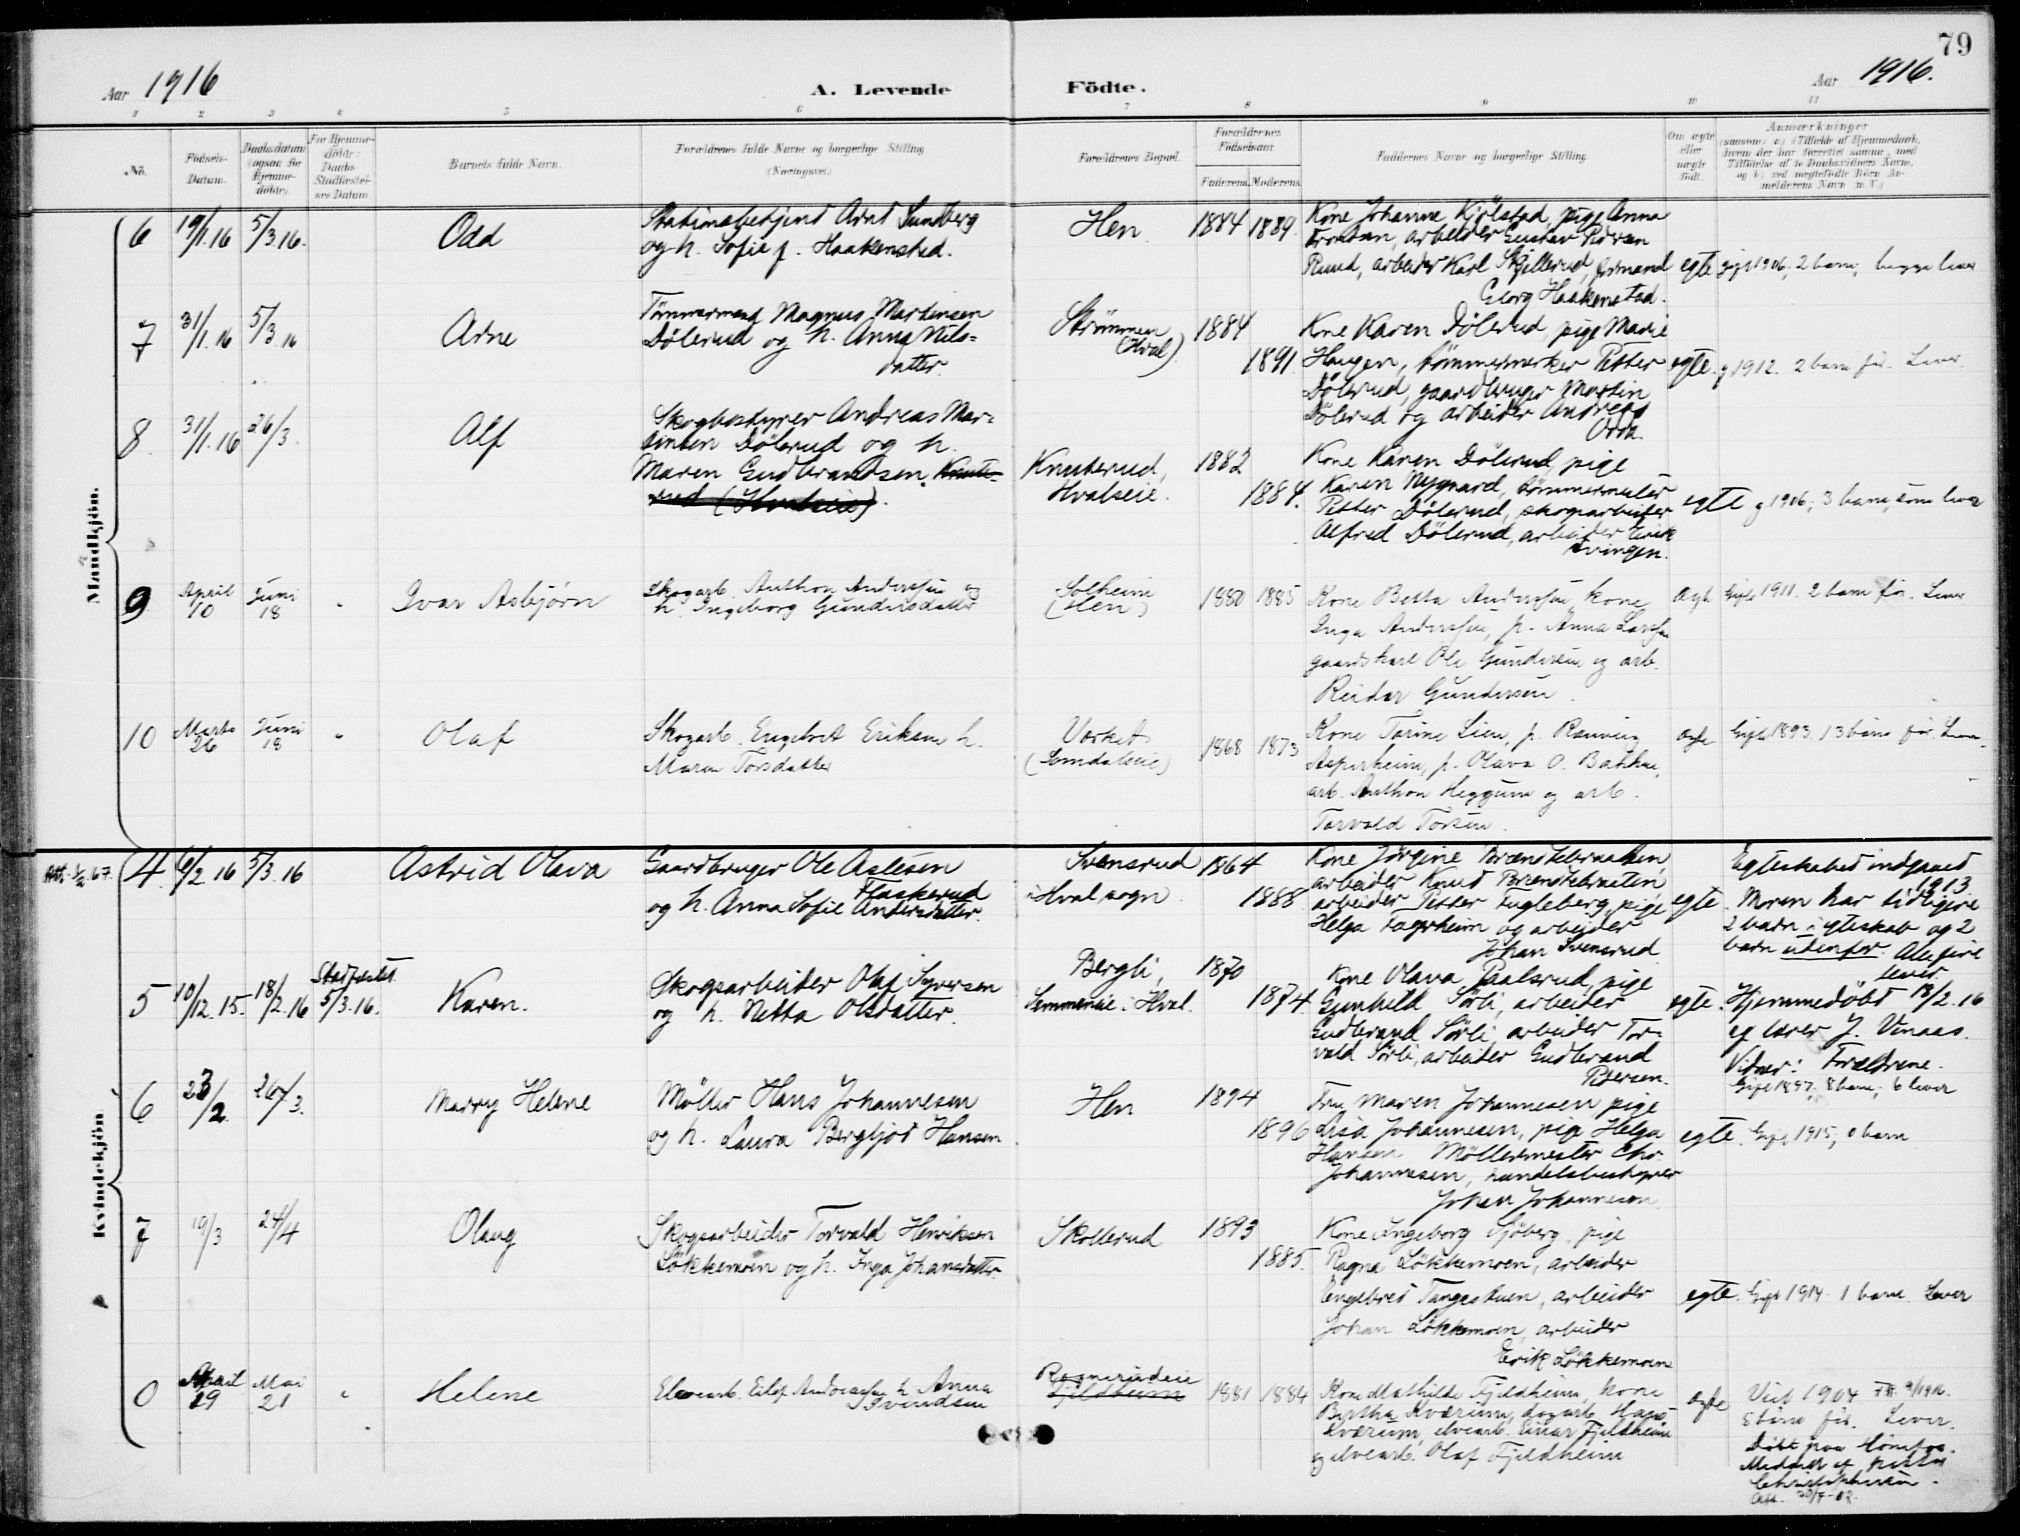 79
Aar 1916
A. Levende
Födte.
Aar 1916.
1 2 3 4 5 6 7 8 9 10 11
No.
Födsels-
Datum.
Daabsdatum
(ogsaa for
Hjemme-
döbte).
For Hjemme-
döbte:
Daabs-
Stadfæstel-
ses Datum.
Barnets fulde Navn.
Forældrenes fulde Navne og borgerlige Stilling
(Næringsvei.)
Forældrenes Bopæl.
Forældrenes
Födselsaar.
Faderens. Moderens.
Faddernes Navne og borgerlige Stilling
Om ægte
eller
uægte
födt.
Anmærkninger
Mandkjön.
6
19/1.16
5/3.16.
Odd
Stationsbetjent Arnt Sundberg
og h. Sofie f. Haakenstad.
Hen
1884 1889.
Kone Johanne Kjölstad, pige Anna
Trondsen, arbeider Gustav
Ruud, arbeider Karl Skjellerud, formand
Georg Haakenstad.
egte
gift 1906, 2 barn, begge lever
7
31/1.16
5/3.16
Arne
Tømmermand Magnus Martinsen
Dölerud og h. Anna Nils=
datter.
Strömmen
(Hval).
1884
1891.
Kone Karen Dölerud, pige Marie
Haugen, tömmermerker Petter
Dölerud, gaardbruger Martin
Dölerud og arbeider Andreas
egte.
g 1912. 2 barn før. Lever.
8.
31/1.16
26/3.
Alf
Skogbestyrer Andreas Mar=
tinsen Dölerud og h.
Maren Gudbrandsen. Knute=
rud (Hvalseie).
Knuterud,
Hvalseie.
1882
1884.
Kone Karen Dölerud, pige
Karen Nygaard, tömmermester
Petter Dölerud, skogsarbeider
Alfred Dölerud, arbeider Eirik
Svingen.
egte
g 1906; 3 barn, som lever
9
April
10
Juni
18
"
Ivar Asbjörn
Skogarb. Anthon Anderssen og
h. Ingeborg Gundersdatter
Solheim
(Hen)
1880 1885
Kone Betta Anderssen, kone
Inga Anderssen, p. Anna Larssen
gaardskarl Ole Gundersen og arb.
Reidar Gundersen.
Ægte
Gift 1911. 2 barn før. Lever
10
Marts
26
Juni
18
"
Olaf
Skogarb. Engebret Eriksen h.
Maren Torsdatter
Værket
(Somdaleie)
1868 1873
Kone Torine Lien, p. Ranveig
Asperheim, p. Olava O. Bakken,
arb. Anthon Heggum og arb.
Torvald Torsen.
ægte
Gift 1893. 13 barn før. Lever.
Kvindekjön
Att. 67.
4.
6/2 16
5/3.16
Astrid Olava
Gaardbruger Ole Aslesen
Flaskerud
og h. Anna Sofie Andersdatter.
Svensrud
i Hval sogn
1864
1888
Kone Jörgine Brændebraaten,
arbeider Knut Brændebraaten,
arbeider Petter Fugleberg, pige
Helga Fagerheim og arbeider
Johan Svensrud.
egte.
Egteskabet indgaaet
1913.
Moren har tidligere
2 barn i egteskab og 2
barn utenfor. Alle fire
lever.
5
10/12.15.
18/2.16
Stadfæstet
5/3.16.
Karen.
Skogsarbeider Olaf Syversen
og h. Netta Olsdatter.
Bergli,
Semmeneie i Hval.
1870
1874.
Kone Olava Paalsrud, pige
Gunhild Sörli, arbeider
Gudbrand Sörli, arbeider Tor=
vald Sörli, arbeider Gudbrand
Petersen.
egte.
Hjemmedöbt 18/2.16
af lærer J. Vinaas.
Vidner: Foreldrene.
Gift 1897, 8 barn; 6 lever
6
23/2.
26/3.
Marry Helene
Möller Hans Johannesen
og h. Laura Bergljot Hansen.
Hen
1894
1896
Fru Maren Johannesen, pige
Lisa Johannesen, pige Helga
Hansen Möllermester Chr.
Johannesen, handelsbestyrer
Johan Johannesen
egte.
Gift 1915, 0 barn
7
19/3
24/4
Olaug
Skogsarbeider Torvald Henriksen
Lökkemoen og h. Inga Johansdatter.
Skollerud
1893
1885.
Kone Ingeborg Sjöberg, pige
Ragna Lökkemoen, arbeider
Engebret Tangestuen, arbeider
Johan Lökkemoen, arbeider
Erik Lökkemoen
egte.
Gift 1914. 1 barn. Lever
0
April
29
Mai
21
"
Helene
Elvearb. Eilef Anderssen h. Anna
Svendsen
Fjeldheim
1881 1884
Kone Mathilde Fjeldheim, kone
Bertha Kværum, dagarb. Hans
Kværum, elvearb. Einar Fjeldheim
og elvearb. Olaf Fjeldheim
ægte
Viet 1904
5 barn før. Lever.
Döbt paa Hönefos.